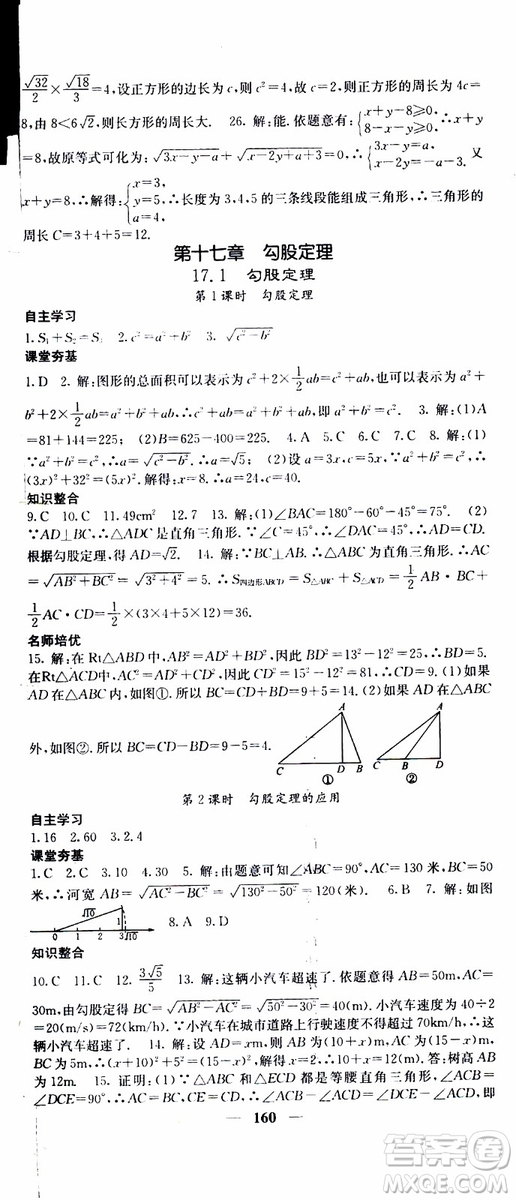 √32/2×√18/3=4,设正方形的边长为c,则c²=4,故c=2,所以正方形的周长为
8,由8<6√2,则长方形的周长大. 26. 解:能.依题意有:{x+y-8≥0, 8-x-y≥0, ∴x+y
=8,故原等式可化为:√3x-y-a+√x-2y+a+3=0.∴{3x-y=a, 又
x+y=8,∴{x=3, y=5, ∴长度为3,4,5的三条线段能组成三角形,∴三角形的
周长C=3+4+5=12.
第十七章 勾股定理
17.1 勾股定理
第1课时 勾股定理
自主学习
1.S₁+S₂=S₃ 2.a²+b²=c² 3.
课堂夯基
1.D 2.解:图形的总面积可以表示为c²+2×1/2ab=c²+ab,也可以表示为a²+
b²+2×1/2ab=a²+b²+ab,∴c²+ab=a²+b²+ab,∴a²+b²=c². 3.解:(1)A
=81+144=225;(2)B=625-400=225. 4.A 5.A 6.B 7.A 8.解:(1)
∵a²+b²=c²,∴a=√c²-b².∴a=√5;(2)设a=3x,c=5x,∵a²+b²=c²,∴
(3x)²+32²=(5x)².解得x=8.∴a=24,c=40.
知识整合
9.C 10.C 11.49cm² 12.7 13.解:(1)∠BAC=180°-60°-45°=75°. (2)
∵AD⊥BC,∴△ADC是直角三角形,∵∠C=45°,∴∠DAC=45°.∴AD=CD.
根据勾股定理,得AD=√2. 14.解:连接AC,∵∠ABC=90°,AB=3,BC=4,∴AC
=√AB²+BC²=√3²+4²=5.∴S四边形ABCD=S△ABC+S△ACD=1/2AB·BC+
1/2AC·CD=1/2×(3×4+5×12)=36.
名师培优
15.解:在Rt△ABD中,AB²=AD²+BD²,因此BD²=AB²-AD²=25.∴BD=5.
在Rt△ADC中,AC²=AD²+CD²,因此CD²=AC²-AD²=81.∴CD=9.(1)如果
AD在△ABC内,如图①.所以BC=CD+BD=9+5=14. (2)如果AD在△ABC
外,如图②.所以BC=CD-BD=9-5=4.
A A
C D B C B D
① ②
第2课时 勾股定理的应用
自主学习
1.16 2.60 3.2.4
课堂夯基
1.C 2.C 3.10 4.30 5.解:由题意可得∠ABC=90°,AC=130米,BC=50
米,∴河宽AB=√AC²-BC²=√130²-50²=120(米). 6.C 7.B 8.解:如图
√10 8.A 9.D
0 1 2 3 √10
知识整合
10.C 11.C 12. 3√5/5 13.解:这辆小汽车超速了.∵∠ACB=90°,AB=50m,AC=
30m,由勾股定理得BC=√AB²-AC²=√50²-30²=40(m).小汽车速度为40÷2
=20(m/s)=72(km/h).∵小汽车在城市道路上行驶速度不得超过70km/h,∴这
辆小汽车超速了. 14.解:设AD=xm,则由题意可得BD=(10-x)m,BC=
∴(x+10)²+5²=(15-x)².解得x=2.∴AB=10+2=12.答:树高AB
为12m. 15.证明:(1)∵△ABC和△ECD都是等腰直角三角形,∴∠ACB=
∠DCE=90°,∴∠ACE+∠ACD=∠BCD+∠ACD,∴∠ACE=∠BCD,即
160
答案圈
MXQE.COM